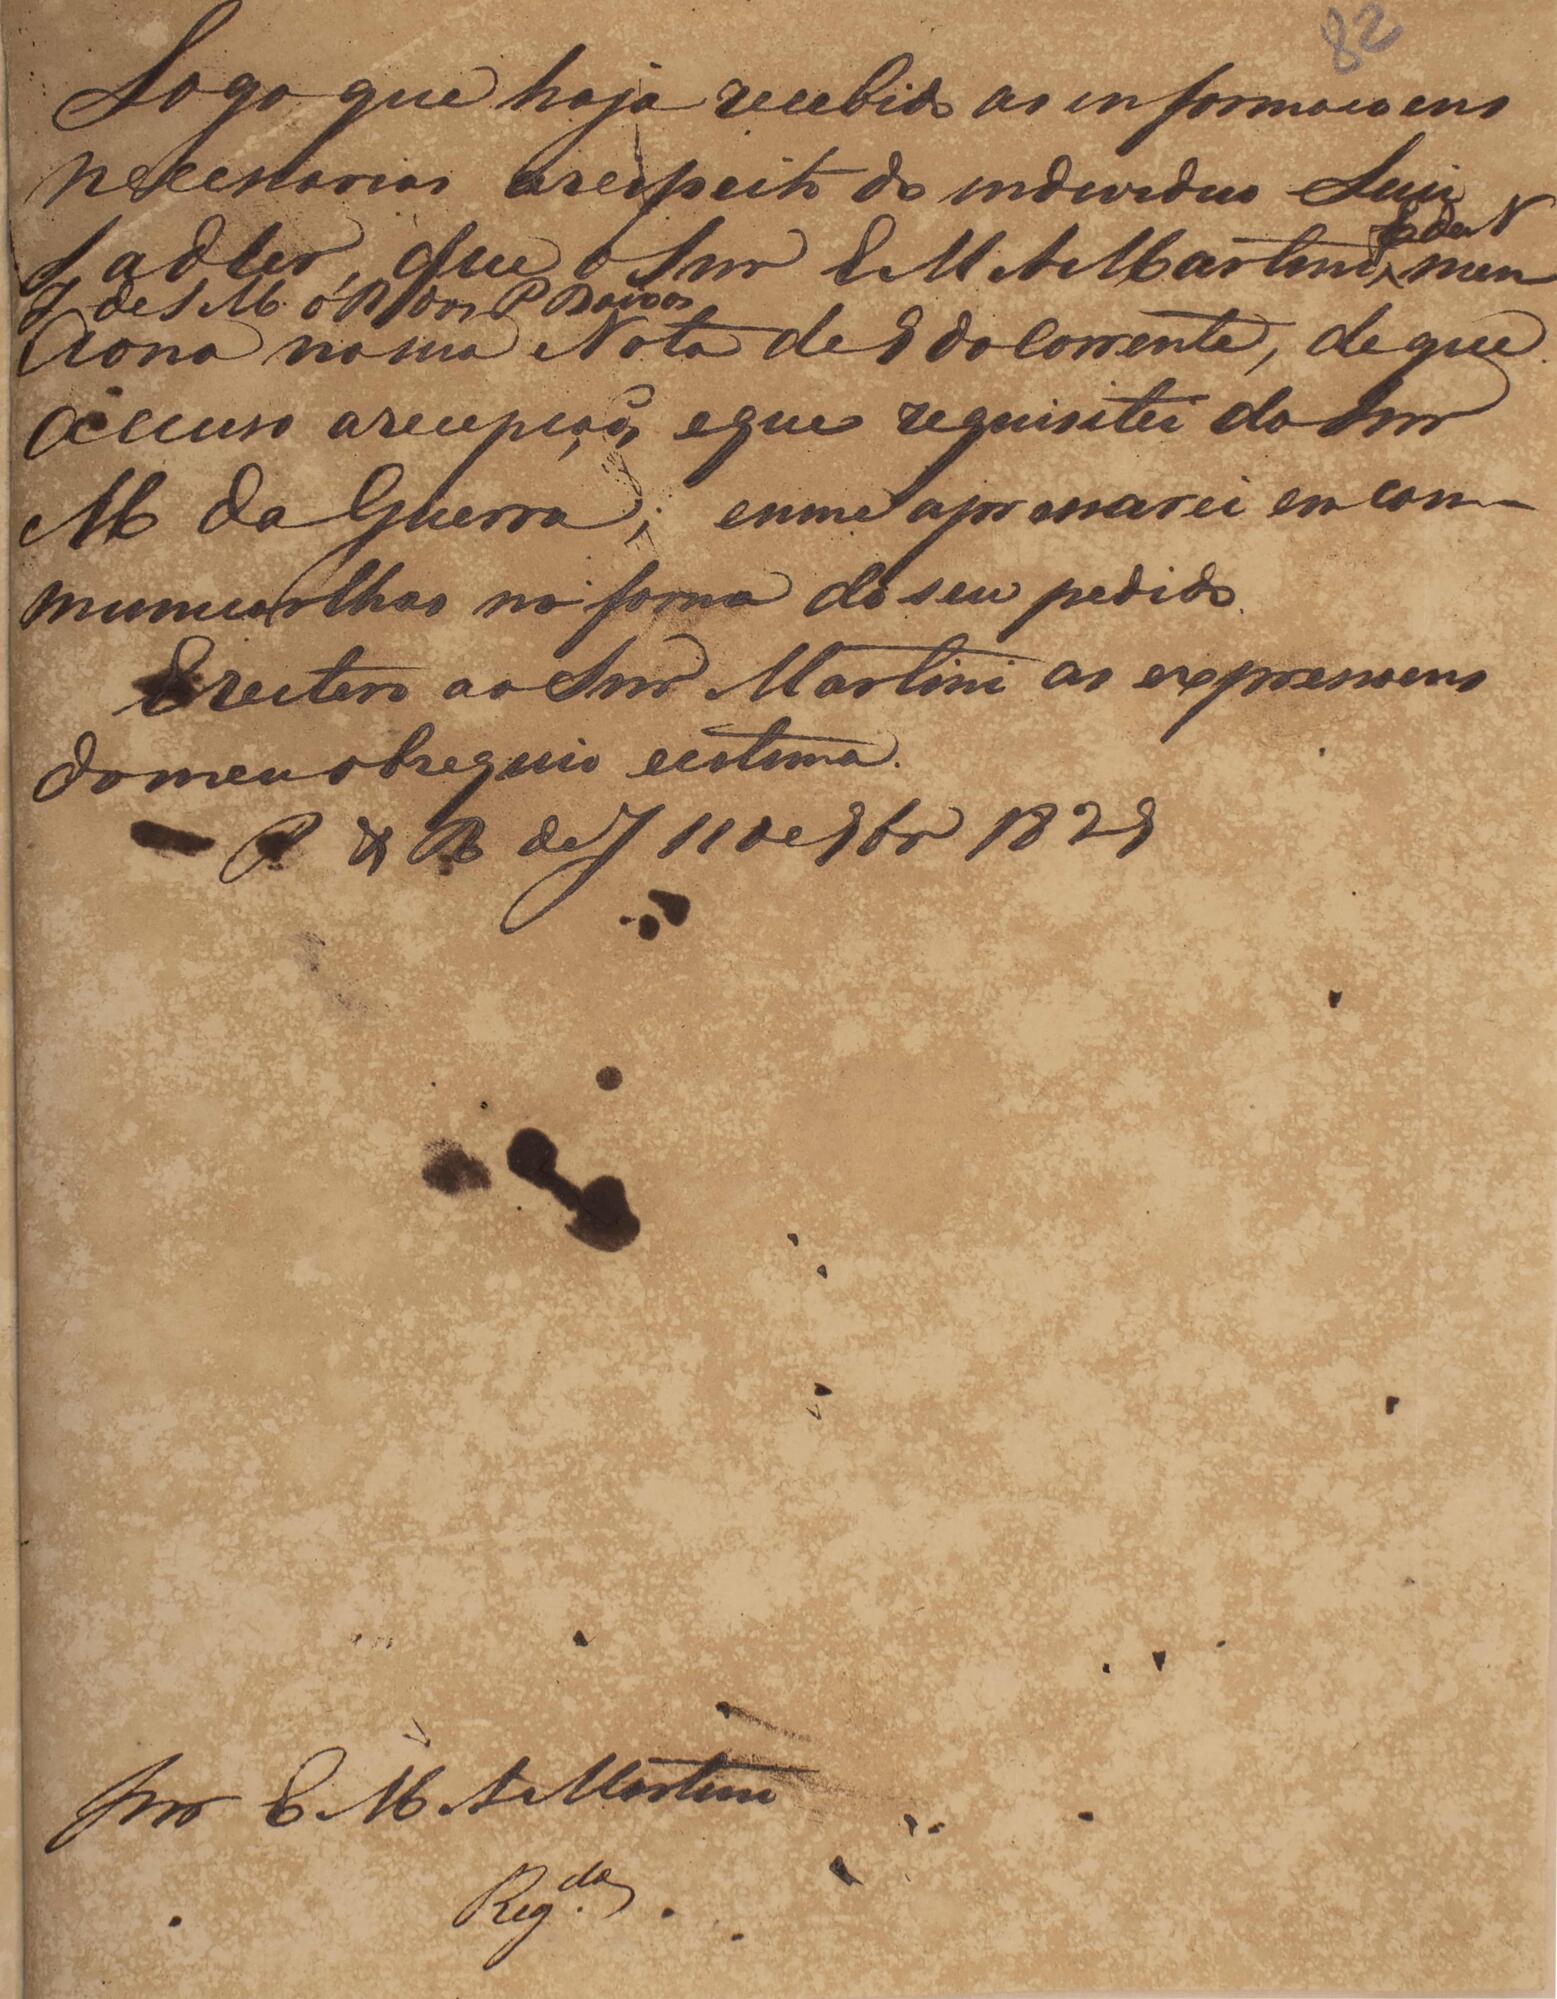 82
Logo que haja recebido as informacoens
necessarias arespeito do individuo Luiz
Sadler, que o Snr E M A Martini men
E de N
I de S M O R dos P Baixos
ciona na sua Nota de 9 do Corrente, de que
accuso arecepção, eque requisitei do Snr
M da Guerra; eu me apressarei em com-
municarlhas na forma do seu pedido.
E reitero ao Snr Martini as expressoens
do meu obsequio eestima.
P de 11 de 9br 1829
Snr E. M. A Martini
Reg.da